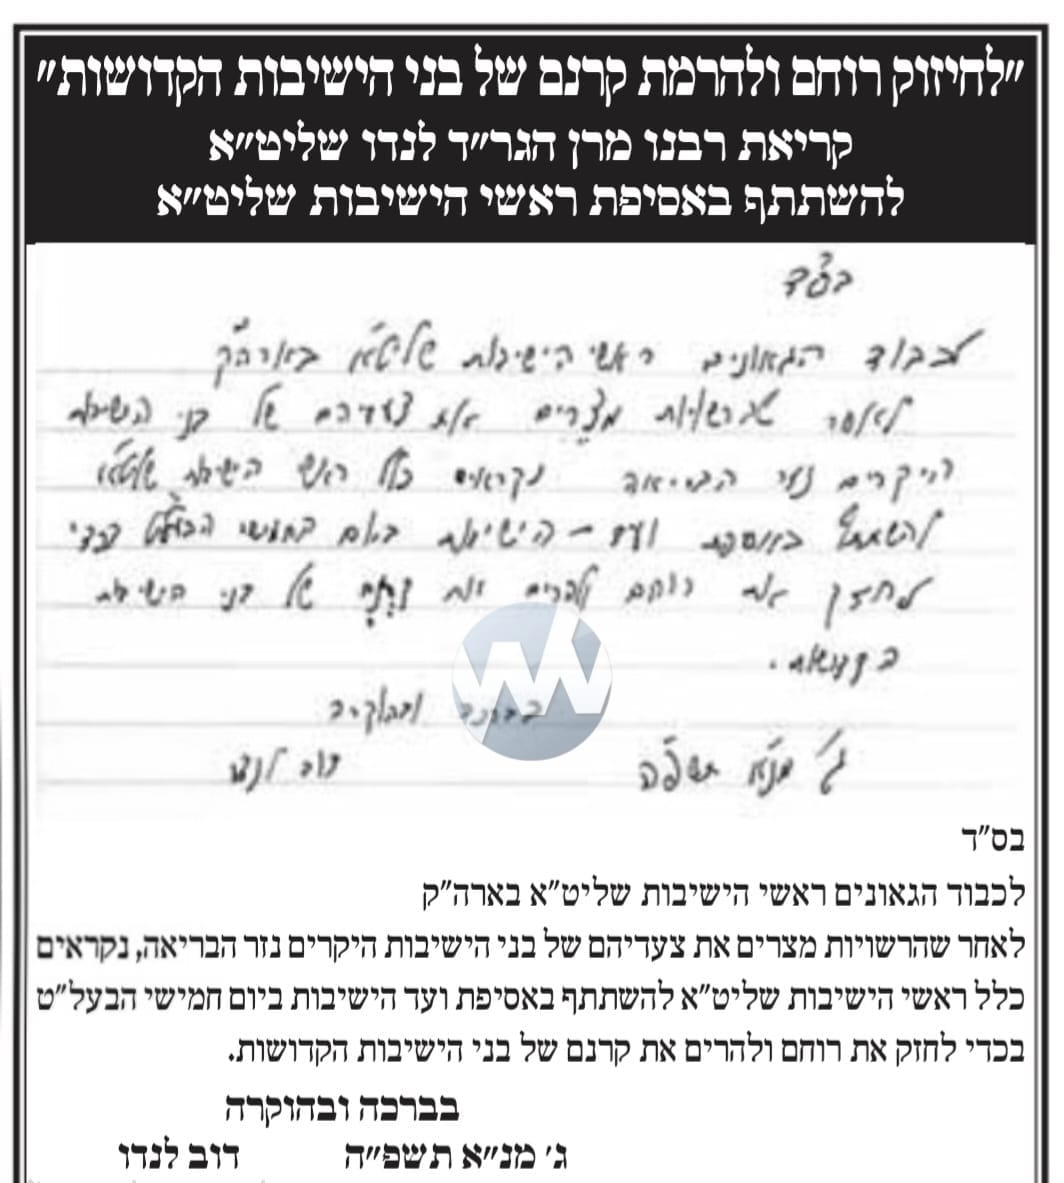 "לחיזוק רוחם ולהרמת קרנם של בני הישיבות הקדושות"
קריאת רבנו מרן הגר"ד לנדו שליט"א
להשתתף באסיפת ראשי הישיבות שליט"א
בס"ד
לכבוד הגאונים ראשי הישיבות שליט"א בארה"ק
לאחר שהרשויות מצרים את צעדיהם של בני הישיבות
היקרים נזר הבריאה נקראים כלל ראשי הישיבות שליט"א
להשתתף באסיפת ועד - הישיבות ביום חמישי הבעל"ט בכדי
לחזק את רוחם ולהרים את קרנם של בני הישיבות
הקדושות.
בברכה ובהוקרה
ג' מנ"א תשפ"ה דוב לנדו
בס"ד
לכבוד הגאונים ראשי הישיבות שליט"א בארה"ק
לאחר שהרשויות מצרים את צעדיהם של בני הישיבות היקרים נזר הבריאה, נקראים
כלל ראשי הישיבות שליט"א להשתתף באסיפת ועד הישיבות ביום חמישי הבעל"ט
בכדי לחזק את רוחם ולהרים את קרנם של בני הישיבות הקדושות.
בברכה ובהוקרה
ג' מנ"א תשפ"ה דוב לנדו